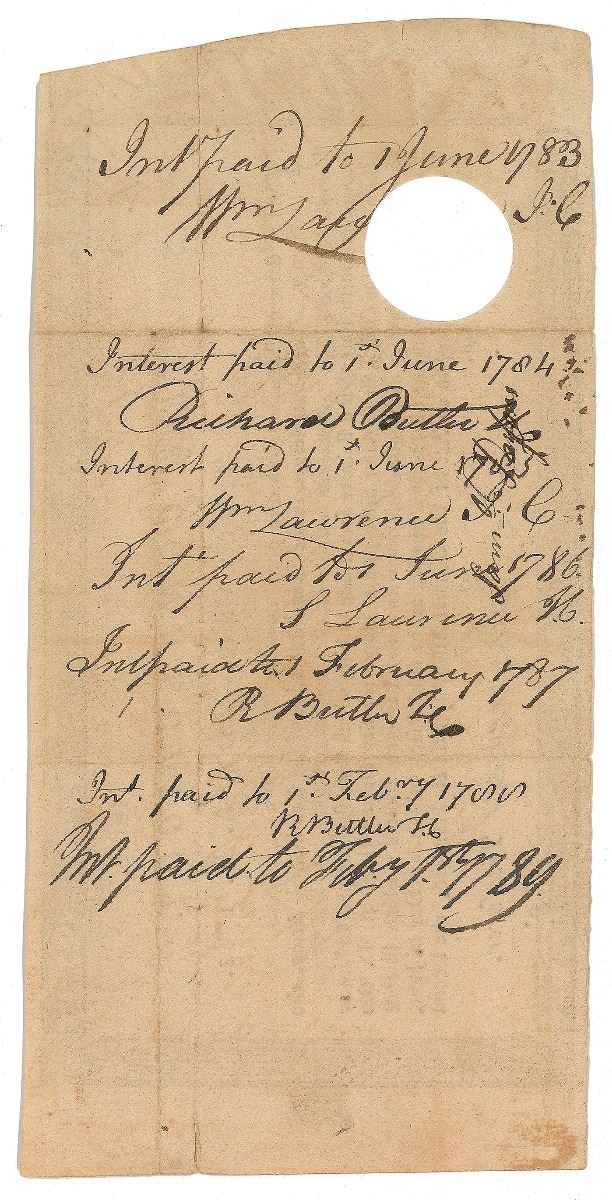 Int paid to 1 June 1783
Wm La J. C
Interest paid to 1st. June 1784.
Richard Butler
Interest paid to 1st. June
Wm Lawrence J. C
Int paid to 1 June 1786.
S Lawrence
Int paid to 1 February 1787
R Butler
Int. paid to 1st. Febry 1788
R Butler
Int. paid to Feby 1st 1789.